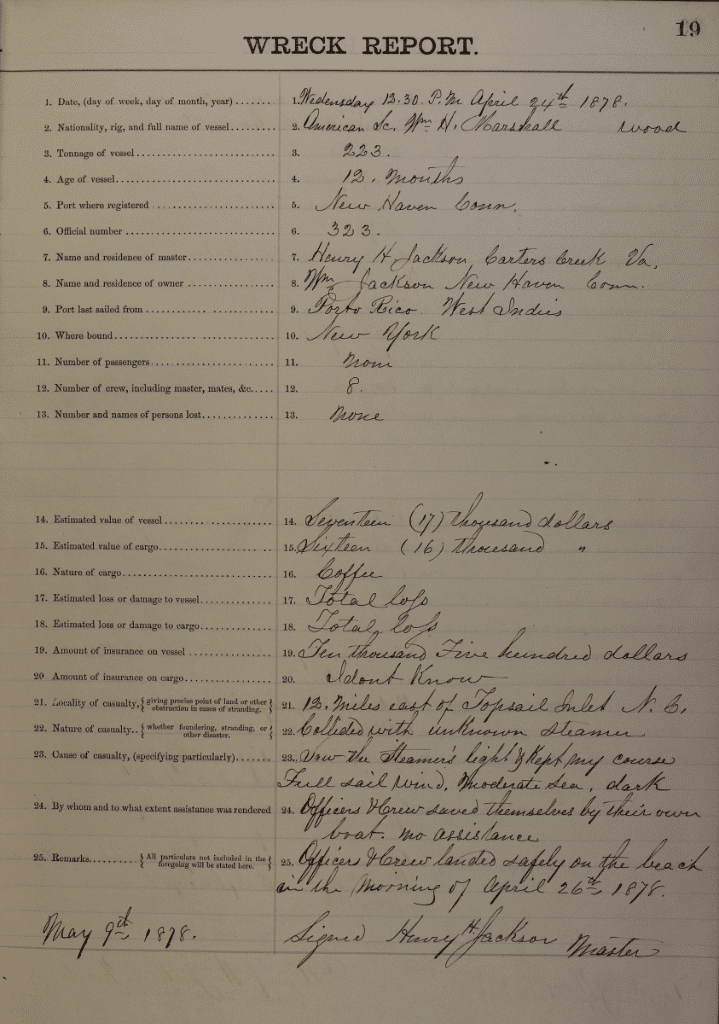 19
WRECK REPORT.
1. Date, (day of week, day of month, year) ....... 1. Wedensday 12.30. P.M. April 24th 1878.
2. Nationality, rig, and full name of vessel ........ 2. American Sc. Wm H. Marshall wood
3. Tonnage of vessel ........ 3. 223.
4. Age of vessel ........ 4. 12. Months
5. Port where registered ........ 5. New Haven Conn.
6. Official number ........ 6. 323.
7. Name and residence of master ........ 7. Henry H. Jackson, Carters Creek Va.
8. Name and residence of owner ........ 8. Wm Jackson New Haven Conn.
9. Port last sailed from ........ 9. Porto Rico. West Indies
10. Where bound ........ 10. New York
11. Number of passengers ........ 11. None
12. Number of crew, including master, mates, &c. .... 12. 8.
13. Number and names of persons lost ........ 13. None
14. Estimated value of vessel ........ 14. Seventeen (17) thousand dollars
15. Estimated value of cargo ........ 15. Sixteen (16) thousand "
16. Nature of cargo ........ 16. Coffee
17. Estimated loss or damage to vessel ........ 17. Total loss
18. Estimated loss or damage to cargo ........ 18. Total loss
19. Amount of insurance on vessel ........ 19. Ten thousand Five hundred dollars
20 Amount of insurance on cargo ........ 20. I dont Know
21. Locality of casualty, { giving precise point of land or other obstruction in cases of stranding. } 21. 12. miles east of Topsail Inlet N. C.
22. Nature of casualty.. { whether foundering, stranding, or other disaster. } 22. Collided with unknown steamer
23. Cause of casualty, (specifying particularly) ....... 23. Saw the Steamer's light & Kept my course
Full sail wind, moderate sea, dark
24. By whom and to what extent assistance was rendered 24. Officers & Crew saved themselves by their own
boat. no assistance
25. Remarks ........ { All particulars not included in the foregoing will be stated here. } 25. Officers & Crew landed safely on the beach
in the Morning of April 26th 1878.
May 9th 1878. Signed Henry H. Jackson Master